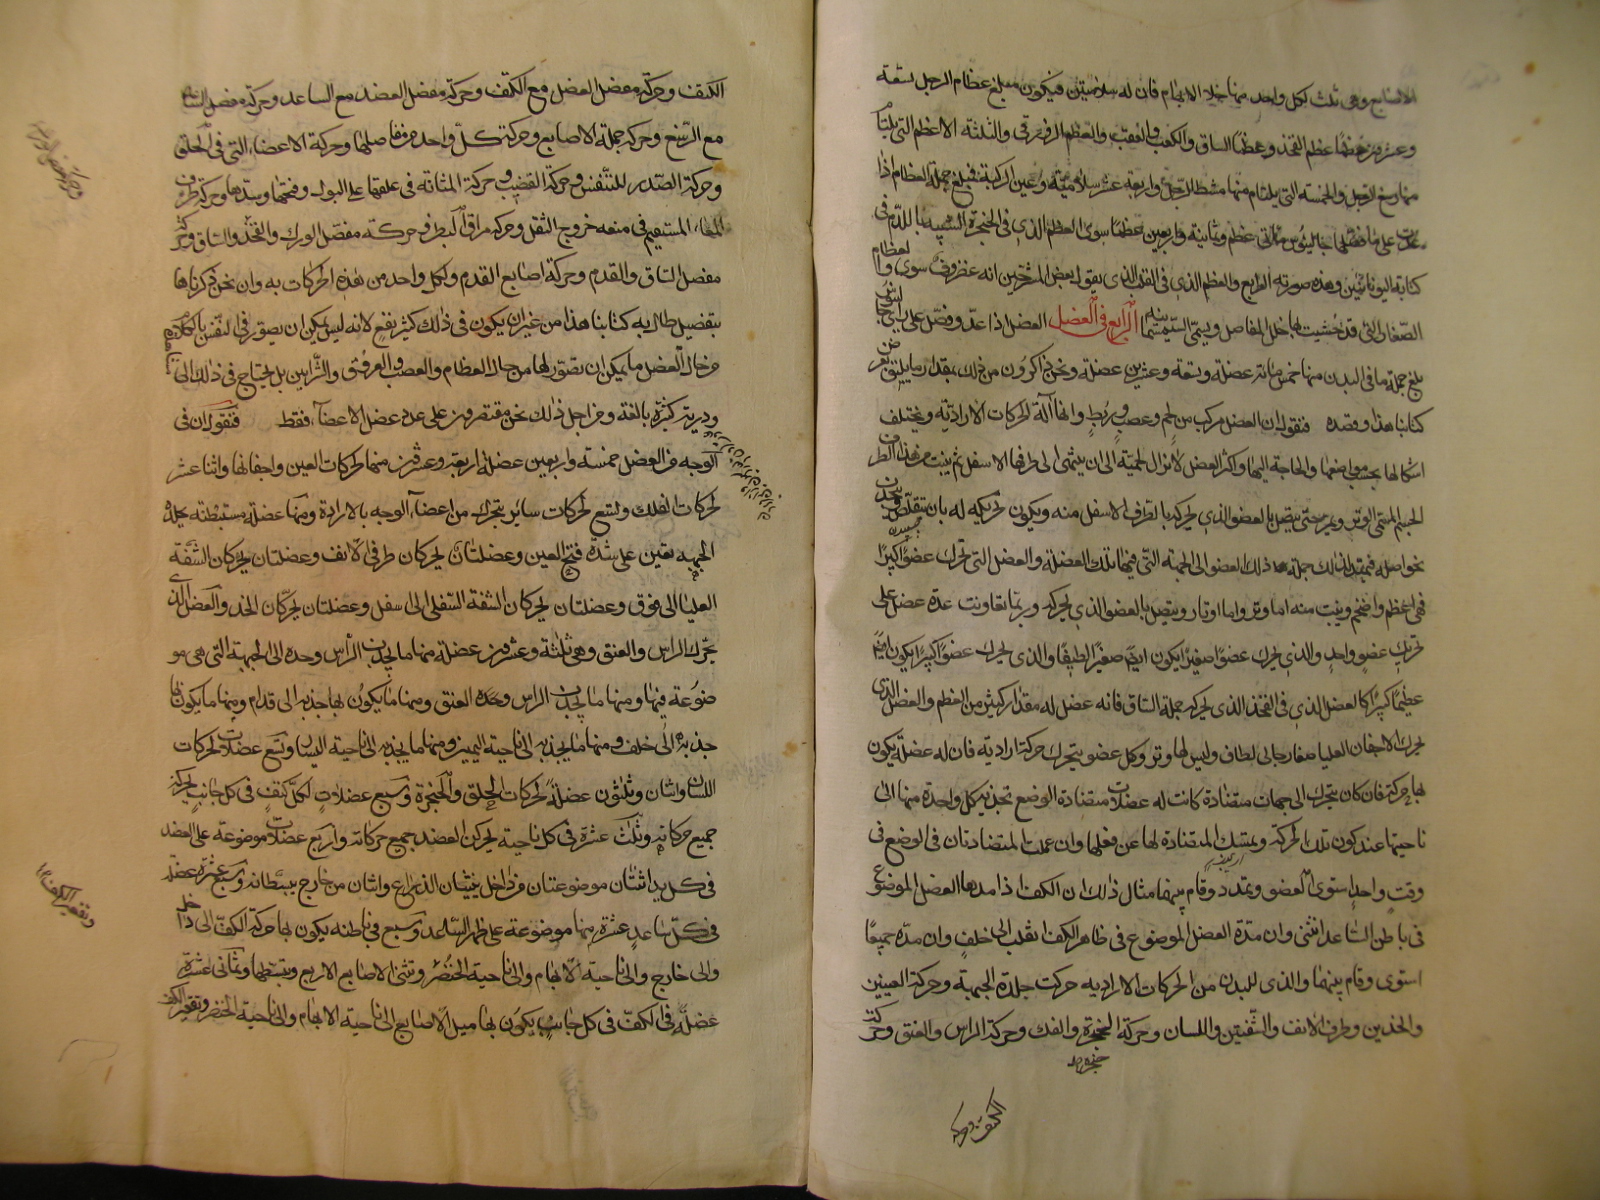 الاصابع وهى ثلث لكل واحد منها خلا الابهام فان له سلاميتين فيكون مبلغ عظام الرجل ستة
وعشرين عظما عظم الفخذ وعظما الساق والكعب والعقب والعظم الزورقى والثلثة الاعظم التى يلتام
منها رسغ الرجل والخمسة التى يلتام منها مشط الرجل واربعة عشر سلامية وعين الركبة فبلغ جملة العظام اذا
عدت على ما فصلها جالينوس مائتى عظم وثمانية واربعين عظما سوى العظم الذى فى الحنجرة الشبيه باللام فى
كتابة اليونانيين وهذه صورته والعظم الذى فى القلب الذى يقول بعض المشرحين انه غضروف سوى العظام
الصغار التى قد حشيت بها خلل المفاصل ويسمى السمسمانية الرابع فى العضل العضل اذا عد وفصل على راى جالينوس
بلغ جملة ما فى البدن منها خمس مائة عضلة وتسعة وعشرين عضلة ونحن ذاكرون من ذلك بمقدار ما يليق بغرض
كتابنا هذا وقصده فنقول ان العضل مركب من لحم وعصب وربط وانها آلة للحركات الارادية ويختلف
اشكالها بحسب مواضعها والحاجة اليها واكثر العضل لا تزال لحمية الى ان ينتهى الى طرفها الاسفل ثم ينبت من هذا الطرف
الجسم المسمى الوتر ويمر حتى يتصل بالعضو الذى يحركه بالطرف الاسفل منه ويكون تحريكه له بان يتقلص ويجذب
نحو اصله فيميل لذلك جملة ذلك العضو الى الجهة التى فيها تلك العضلة والعضل التى تحرك عضوا كبيرا
فهى اعظم واضخم وينبت منه اما وتر واما اوتار ويتصل بالعضو الذى يحركه وربما تعاونت عدة عضل على
تحريك عضو واحد والذى يحرك عضوا صغيرا يكون ايضا صغيرا لطيفا والذى يحرك عضوا كبيرا يكون ايضا
عظيما كبيرا كالعضل الذى فى الفخذ الذى يحرك جملة الساق فانه عضل له مقدار كثير من العظم والعضل الذى
يحرك الاجفان العليا صغار جدا لطاف وليس لها وتر وكل عضو يتحرك حركة ارادية فان له عضلة يكون
بها حركته فان كان يتحرك الى جهات متضادة كانت له عضلات متضادة الوضع تجذبه كل واحدة منها الى
ناحيتها عند كون تلك الحركة ويمسك المتضادة لها عن فعلها وان عملت المتضادتان فى الوضع فى
وقت واحد استوى العضو وتمدد وقام بينهما مثال ذلك ان الكف اذا مدها العضل الموضوع
فى باطن الساعد انثنى وان مدة العضل الموضوع فى ظاهر الكف انقلب الى خلف وان مده جميعا
استوى وقام بينهما والذى للبدن من الحركات الارادية حركت جلدة الجبهة وحركة العينين
والخدين وطرف الانف والشفتين واللسان وحركة الحنجرة والفك وحركة الراس والعنق وحركة
حنجرة
الكتف وحركة
الكتف وحركة مفصل العضل مع الكتف وحركة مفصل العضد مع الساعد وحركة مفصل الساعد
مع الرسغ وحركة جملة الاصابع وحركة كل واحد من مفاصلها وحركة الاعضاء التى فى الحلق
وحركة الصدر للتنفس وحركة القضيب وحركة المثانة فى غلقها على البول وفتحها وحركة طرف
المعاء المستقيم فى منعه خروج الثفل وحركة مراق البطن وحركة مفصل الورك والفخذ والساق وحركة
مفصل الساق والقدم وحركة اصابع القدم ولكل واحد من هذه الحركات به وان نحن ذكرناها
بتفصيل طال به كتابنا هذا من غير ان يكون فى ذلك كثير نفع لانه ليس يمكن ان يتصور فى النفس بالكلام
من حال العضل ما يمكن ان يتصور لها من حال العظام والعصب والعروق والشرايين بل يحتاج فى ذلك الى
ودربة كثيرة بالغة ومن اجل ذلك نحن مقتصرون على عدد عضل الاعضاء فقط فنقول ان فى
الوجه من العضل خمسة واربعين عضلة اربعة وعشرين منها لحركات العين واجفانها واثنا عشر
لحركات الفك وتسع لحركات سائر يتحرك من اعضاء الوجه بالارادة ومنها عضلة مستبطنة جلدة
الجبهة تعين على شدة فتح العين وعضلتان يحركان طرفى الانف وعضلتان يحركان الشفة
العليا الى فوق وعضلتان يحركان الشفة السفلى الى اسفل وعضلتان يحركان الخد والعضل الذى
يحرك الراس والعنق وهى ثلثة وعشرين عضلة منها ما يجذب الرأس وحده الى الجهة التى هى مو
ضوعة فيها ومنها ما يجذب الراس وحده العنق ومنها ما يكون بها جذبه الى قدام ومنها ما يكون بها
جذبه الى خلف ومنها ما يجذبه الى ناحية اليمين ومنها ما يجذبه الى ناحية اليسار وتسع عضلات لحركات
اللسان واثنان وثلثون عضلة لحركات الحلق والحنجرة وسبع عضلات لكل كتف فى كل جانب لحركة
جميع حركاته وثلث عشرة فى كل ناحية يحركن العضد جميع حركاته واربع عضلات موضوعة على العضد
فى كل يد اثنتان موضوعتان من داخل يثنيان الذراع واثنان من خارج يبسطانه وسبع عشرة عضلة
فى كل ساعد عشرة منها موضوعة على ظهر الساعد وسبع فى باطنه يكون بها حركة الكف الى داخل
والى خارج والى ناحية الابهام والى ناحية الخنصر وتثنى الاصابع الاربع وتبسطها وثمانى عشرة
عضلة فى الكف فى كل جانب يكون بها ميل الاصابع الى ناحية الابهام والى ناحية الخنصر وتقعير الكف
وتقعير الكف